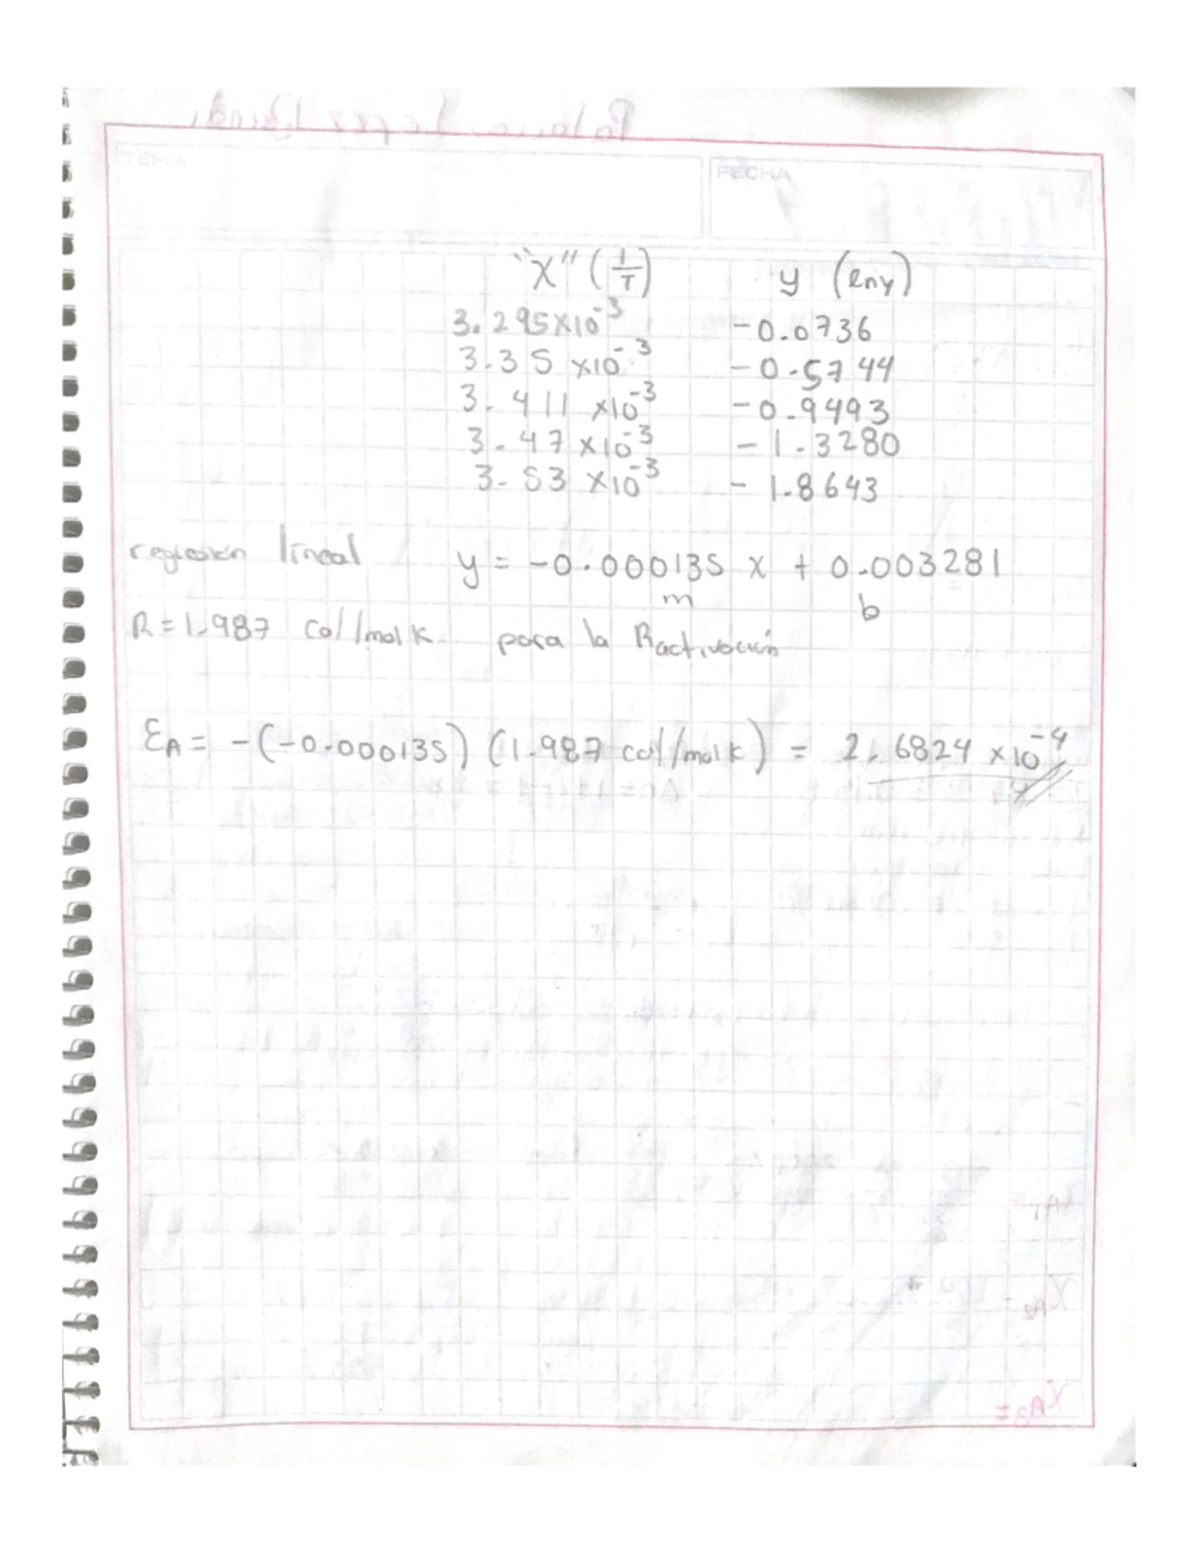 TEMA
FECHA
"X" (1/T) y (lny)
3.295x10^-3 -0.0736
3.35 x10^-3 -0.5744
3.411 x10^-3 -0.9493
3.47 x10^-3 -1.3280
3.53 x10^-3 -1.8643
regresión líneal y = -0.000135 x + 0.003281
m b
R = 1.987 cal/mol K para la Ractivación
EA = -(-0.000135) (1.987 cal/mol k) = 2.6824 x10^-4